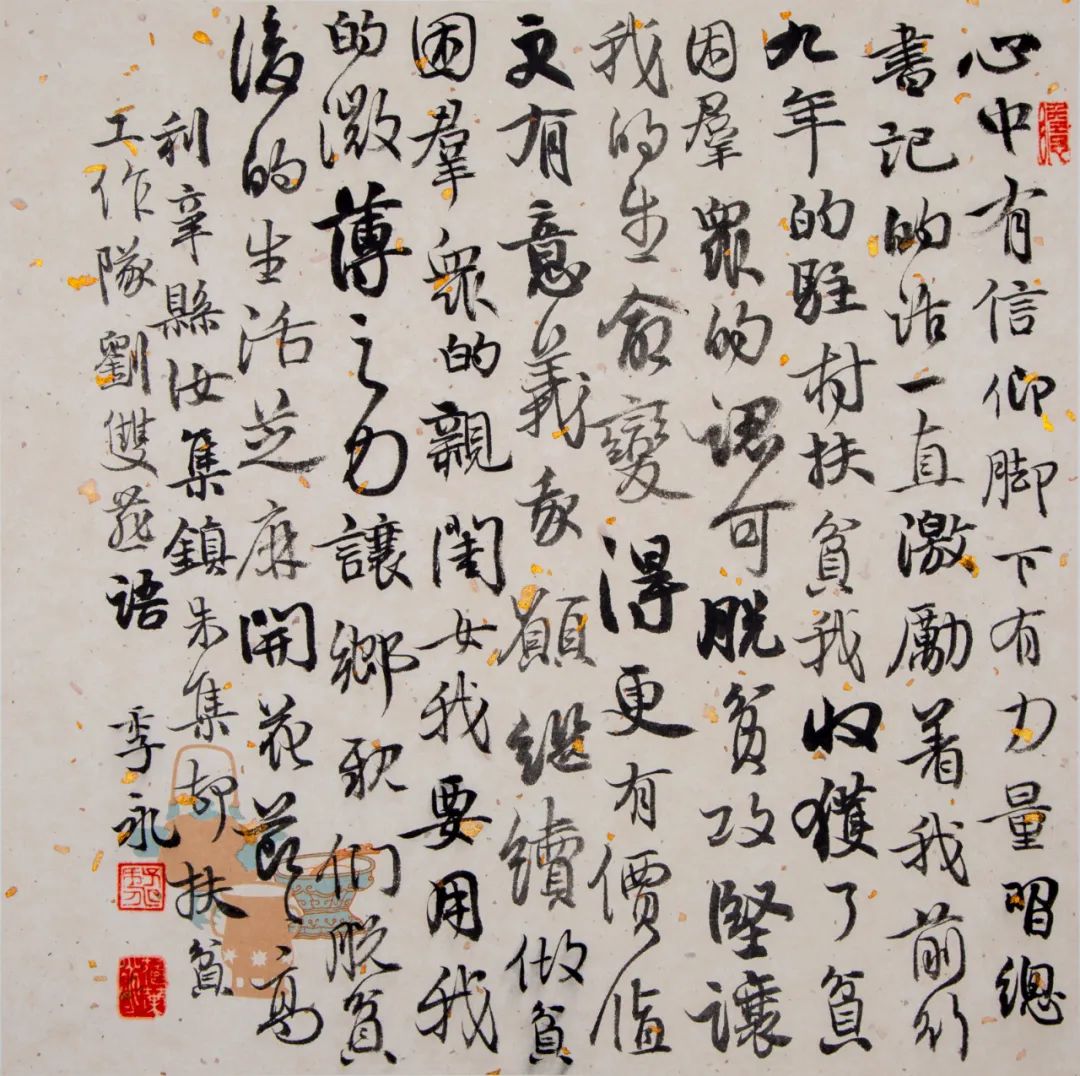 心中有信仰脚下有力量習總
書記的话一直激勵着我前行
九年的駐村扶貧我收獲了貧
困羣眾的認可脱貧攻堅讓
我的生命變得更有價值
更有意義我願继續做貧
困羣眾的親閨女我要用我
的微薄之力讓鄉親們脱貧
後的生活芝麻開花節〻高
利辛縣汝集鎮朱集村扶貧
工作隊劉雙燕语 季永